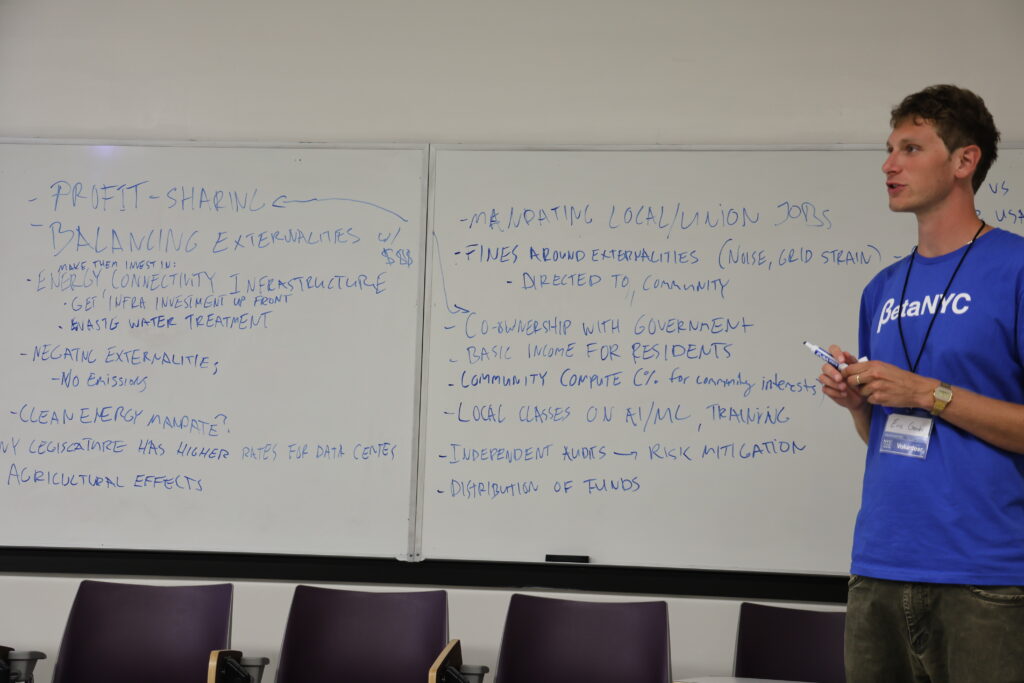 - PROFIT-SHARING
- BALANCING EXTERNALITIES W/ $$$
MAKE THEM INVEST IN:
- ENERGY CONNECTIVITY INFRASTRUCTURE
• GET INFRA INVESTMENT UP FRONT
• WASTE WATER TREATMENT
- NEGATIVE EXTERNALITIES
- NO EMISSIONS
- CLEAN ENERGY MANDATE?
NY LEGISLATURE HAS HIGHER RATES FOR DATA CENTER
AGRICULTURAL EFFECTS
- MANDATING LOCAL/UNION JOBS
- FINES AROUND EXTERNALITIES (NOISE, GRID STRAIN) -
- DIRECTED TO COMMUNITY
- CO-OWNERSHIP WITH GOVERNMENT
- BASIC INCOME FOR RESIDENTS
- COMMUNITY COMPUTE C% for community interests
- LOCAL CLASSES ON AI/ML, TRAINING
- INDEPENDENT AUDITS → RISK MITIGATION
- DISTRIBUTION OF FUNDS
VS
VS USA
βetaNYC
Volunteer